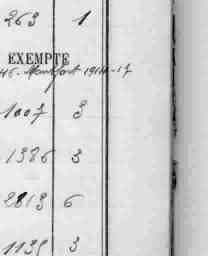 263 1
EXEMPTE
1914-17
1007 3
1386 3
2813 6
1135 3